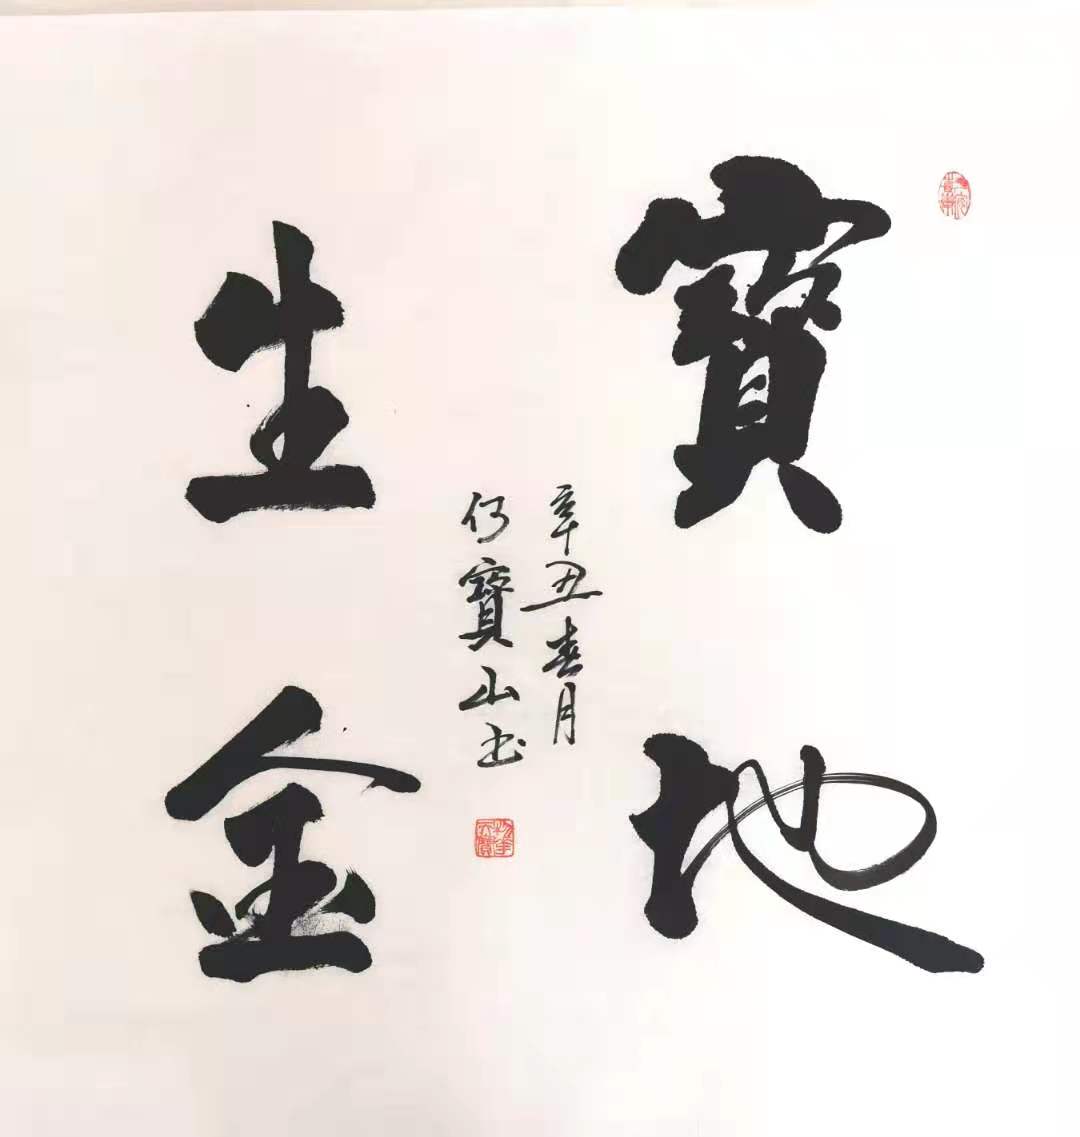 寶地
生金
辛丑春月
何寶山书